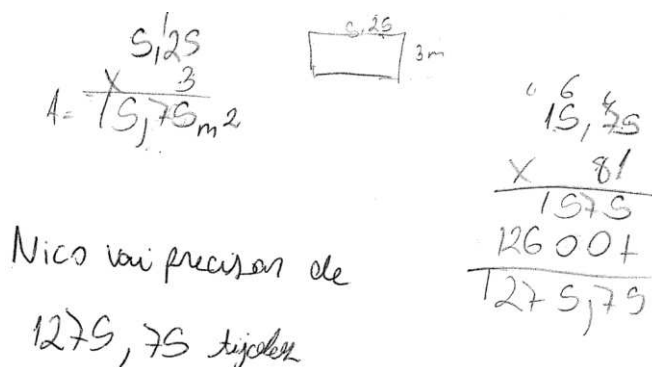 5,25
x 3
A = 15,75 m2
5,25
3m
15,75
x 81
1575
12600+
1275,75
Nico vai precisar de
1275,75 tijolos